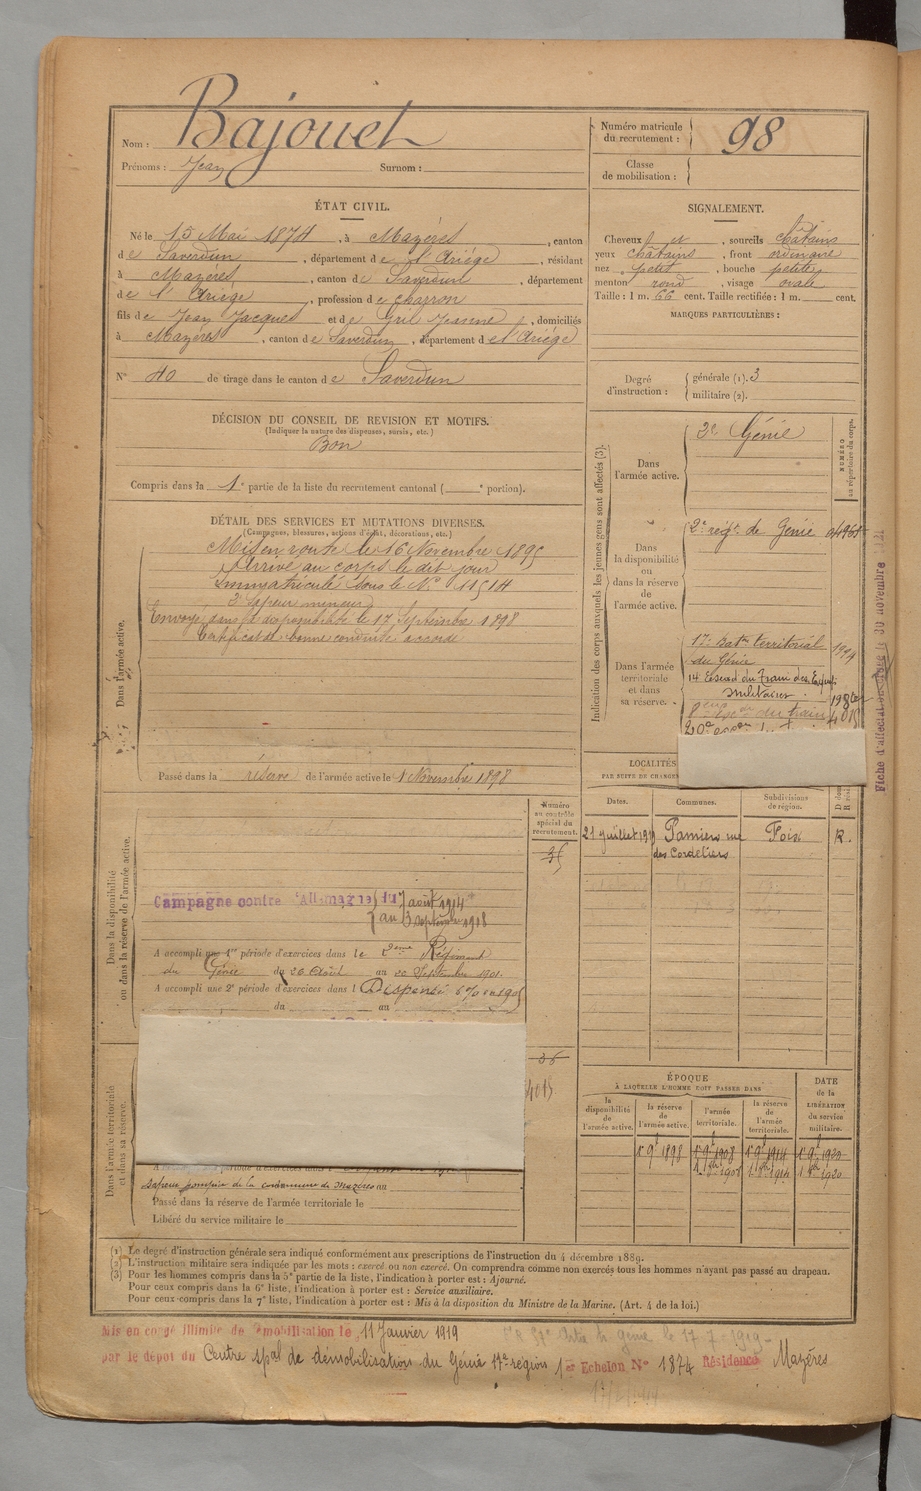 Nom : Bajouet
Prénoms : Jean Surnom :
Numéro matricule du recrutement : 98
Classe de mobilisation :
ÉTAT CIVIL.
Né le 15 Mai 1874, à Mazères, canton
de Saverdun, département de l'Ariège, résidant
à Mazères, canton de Saverdun, département
de l'Ariège, profession de charron
fils de Jean Jacques et de Gril Jeanne, domiciliés
à Mazères, canton de Saverdun, département de l'Ariège
N° 40 de tirage dans le canton de Saverdun
SIGNALEMENT.
Cheveux et, sourcils châtains
yeux châtains, front ordinaire
nez petit, bouche petite
menton rond, visage ovale
Taille : 1 m. 66 cent. Taille rectifiée : 1 m. cent.
MARQUES PARTICULIÈRES :
Degré d'instruction : générale (1). 3
militaire (2).
DÉCISION DU CONSEIL DE REVISION ET MOTIFS.
(Indiquer la nature des dispenses, sursis, etc.)
Bon
Compris dans la 1e partie de la liste du recrutement cantonal ( e portion).
DÉTAIL DES SERVICES ET MUTATIONS DIVERSES.
(Campagnes, blessures, actions d'éclat, décorations, etc.)
Dans l'armée active.
Mis en route le 16 Novembre 1895
Arrivé au corps le dit jour
Immatriculé sous le N° 11514
2e Sapeur mineur
Envoyé dans la disponibilité le 17 Septembre 1898
Certificat de bonne conduite accordé
Passé dans la réserve de l'armée active le 1 Novembre 1898
Indication des corps auxquels les jeunes gens sont affectés (3).
NUMÉRO au répertoire du corps.
Dans l'armée active.
2e Génie
Dans la disponibilité ou dans la réserve de l'armée active.
2e régt de Génie
Dans l'armée territoriale et dans sa réserve.
17e Batn territorial
du Génie
14 Escad du Train des Equip
militaires
du train
LOCALITÉS
Dates. Communes. Subdivisions de région.
21 juillet 1919 Pamiers rue des Cordeliers Foix R.
Dans la disponibilité ou dans la réserve de l'armée active.
Numéro au contrôle spécial du recrutement.
35
Campagne contre l'Allemagne du août 1914
au septembre 1918
A accompli une 1re période d'exercices dans le 2eme Régiment
du Génie du 26 Août au 22 Septembre 1901.
A accompli une 2e période d'exercices dans l Dispensé
du au
36
4015
Dans l'armée territoriale et dans sa réserve.
sapeur pompier de la de Mazères au
Passé dans la réserve de l'armée territoriale le
Libéré du service militaire le
ÉPOQUE
À LAQUELLE L'HOMME DOIT PASSER DANS
la disponibilité de l'armée active. la réserve de l'armée active. l'armée territoriale. la réserve de l'armée territoriale. DATE de la LIBÉRATION du service militaire.
1er 9bre 1898 1er 9bre 1908 1er 9bre 1914 1er 9bre 1920
(1) Le degré d'instruction générale sera indiqué conformément aux prescriptions de l'instruction du 4 décembre 1889.
(2) L'instruction militaire sera indiquée par les mots : exercé ou non exercé. On comprendra comme non exercés tous les hommes n'ayant pas passé au drapeau.
(3) Pour les hommes compris dans la 5e partie de la liste, l'indication à porter est : Ajourné.
Pour ceux compris dans la 6e liste, l'indication à porter est : Service auxiliaire.
Pour ceux compris dans la 7e liste, l'indication à porter est : Mis à la disposition du Ministre de la Marine. (Art. 4 de la loi.)
Mis en congé illimité de démobilisation le 11 Janvier 1919
par le dépôt du Centre spal de démobilisation du Génie 17e région 1er Echelon N° 1874 Résidence Mazères